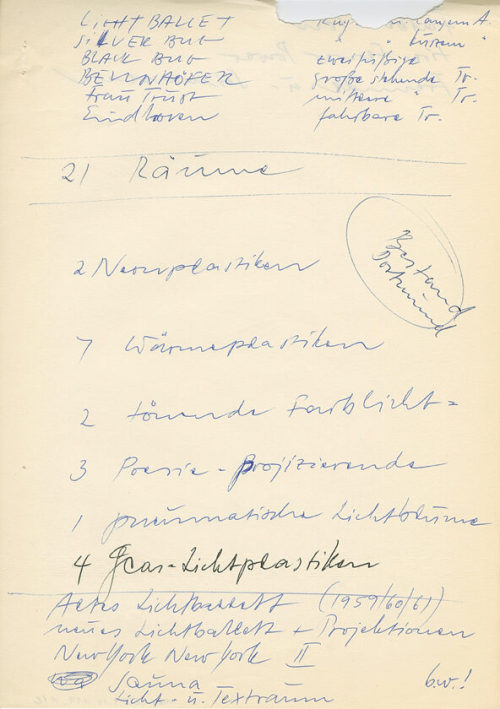 LICHTBALLET
SILVER BUG " " Küssen "
BLACK BUG zweifüßige
BELLHÖFER große stehende Tr.
Frau Trust mittlere " Tr.
Eindhoven fahrbare Tr.
21 Räume
Bestand
Dortmund
2 Neonplastiken
7 Wärmeplastiken
2 tönende Farblicht=
3 Poesie-Projizierende
1 pneumatische Lichtblume
4 Gas-Lichtplastiken
Altes Lichtballett (1959/60/61)
neues Lichtballett + Projektionen
New York New York II
Sauna b.w.!
Licht- u. Textraum